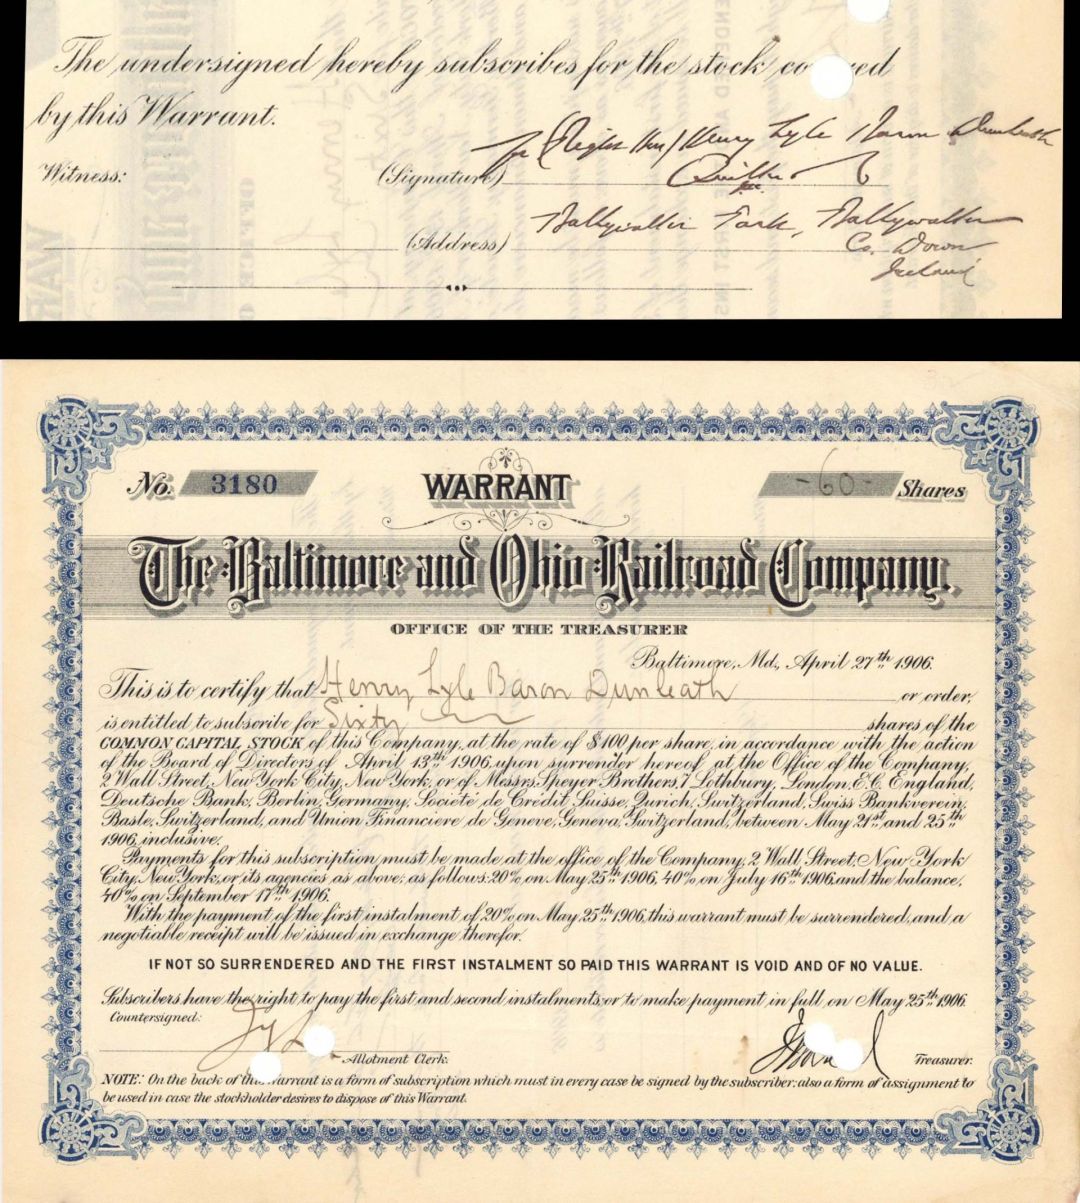 The undersigned hereby subscribes for the stock co ed
by this Warrant.
Witness:
(Signature) (Right Hon) Henry Lyle Baron Dunleath
(Address) Ballywalter Park, Ballywalter
Co. Down
Ireland
No. 3180 WARRANT -60- Shares
The Baltimore and Ohio Railroad Company.
OFFICE OF THE TREASURER
Baltimore, Md., April 27th 1906.
This is to certify that Henry Lyle Baron Dunleath or order,
is entitled to subscribe for Sixty shares of the
COMMON CAPITAL STOCK of this Company, at the rate of $100 per share, in accordance with the action
of the Board of Directors of April 13th 1906, upon surrender hereof at the Office of the Company,
2 Wall Street, New York City, New York, or of Messrs Speyer Brothers, 7 Lothbury, London, E.C. England,
Deutsche Bank, Berlin, Germany, Société de Crédit Suisse, Zurich, Switzerland, Swiss Bankverein,
Basle, Switzerland, and Union Financière de Genève, Geneva, Switzerland, between May 21st and 25th
1906, inclusive.
Payments for this subscription must be made at the office of the Company, 2 Wall Street, New York
City, New York, or its agencies as above, as follows: 20% on May 25th 1906, 40% on July 16th 1906 and the balance,
40% on September 17th 1906.
With the payment of the first instalment of 20% on May 25th 1906, this warrant must be surrendered, and a
negotiable receipt will be issued in exchange therefor.
IF NOT SO SURRENDERED AND THE FIRST INSTALMENT SO PAID THIS WARRANT IS VOID AND OF NO VALUE.
Subscribers have the right to pay the first and second instalments, or to make payment in full on May 25th 1906.
Countersigned:
Allotment Clerk. Treasurer.
NOTE: On the back of this warrant is a form of subscription which must in every case be signed by the subscriber: also a form of assignment to
be used in case the stockholder desires to dispose of this Warrant.